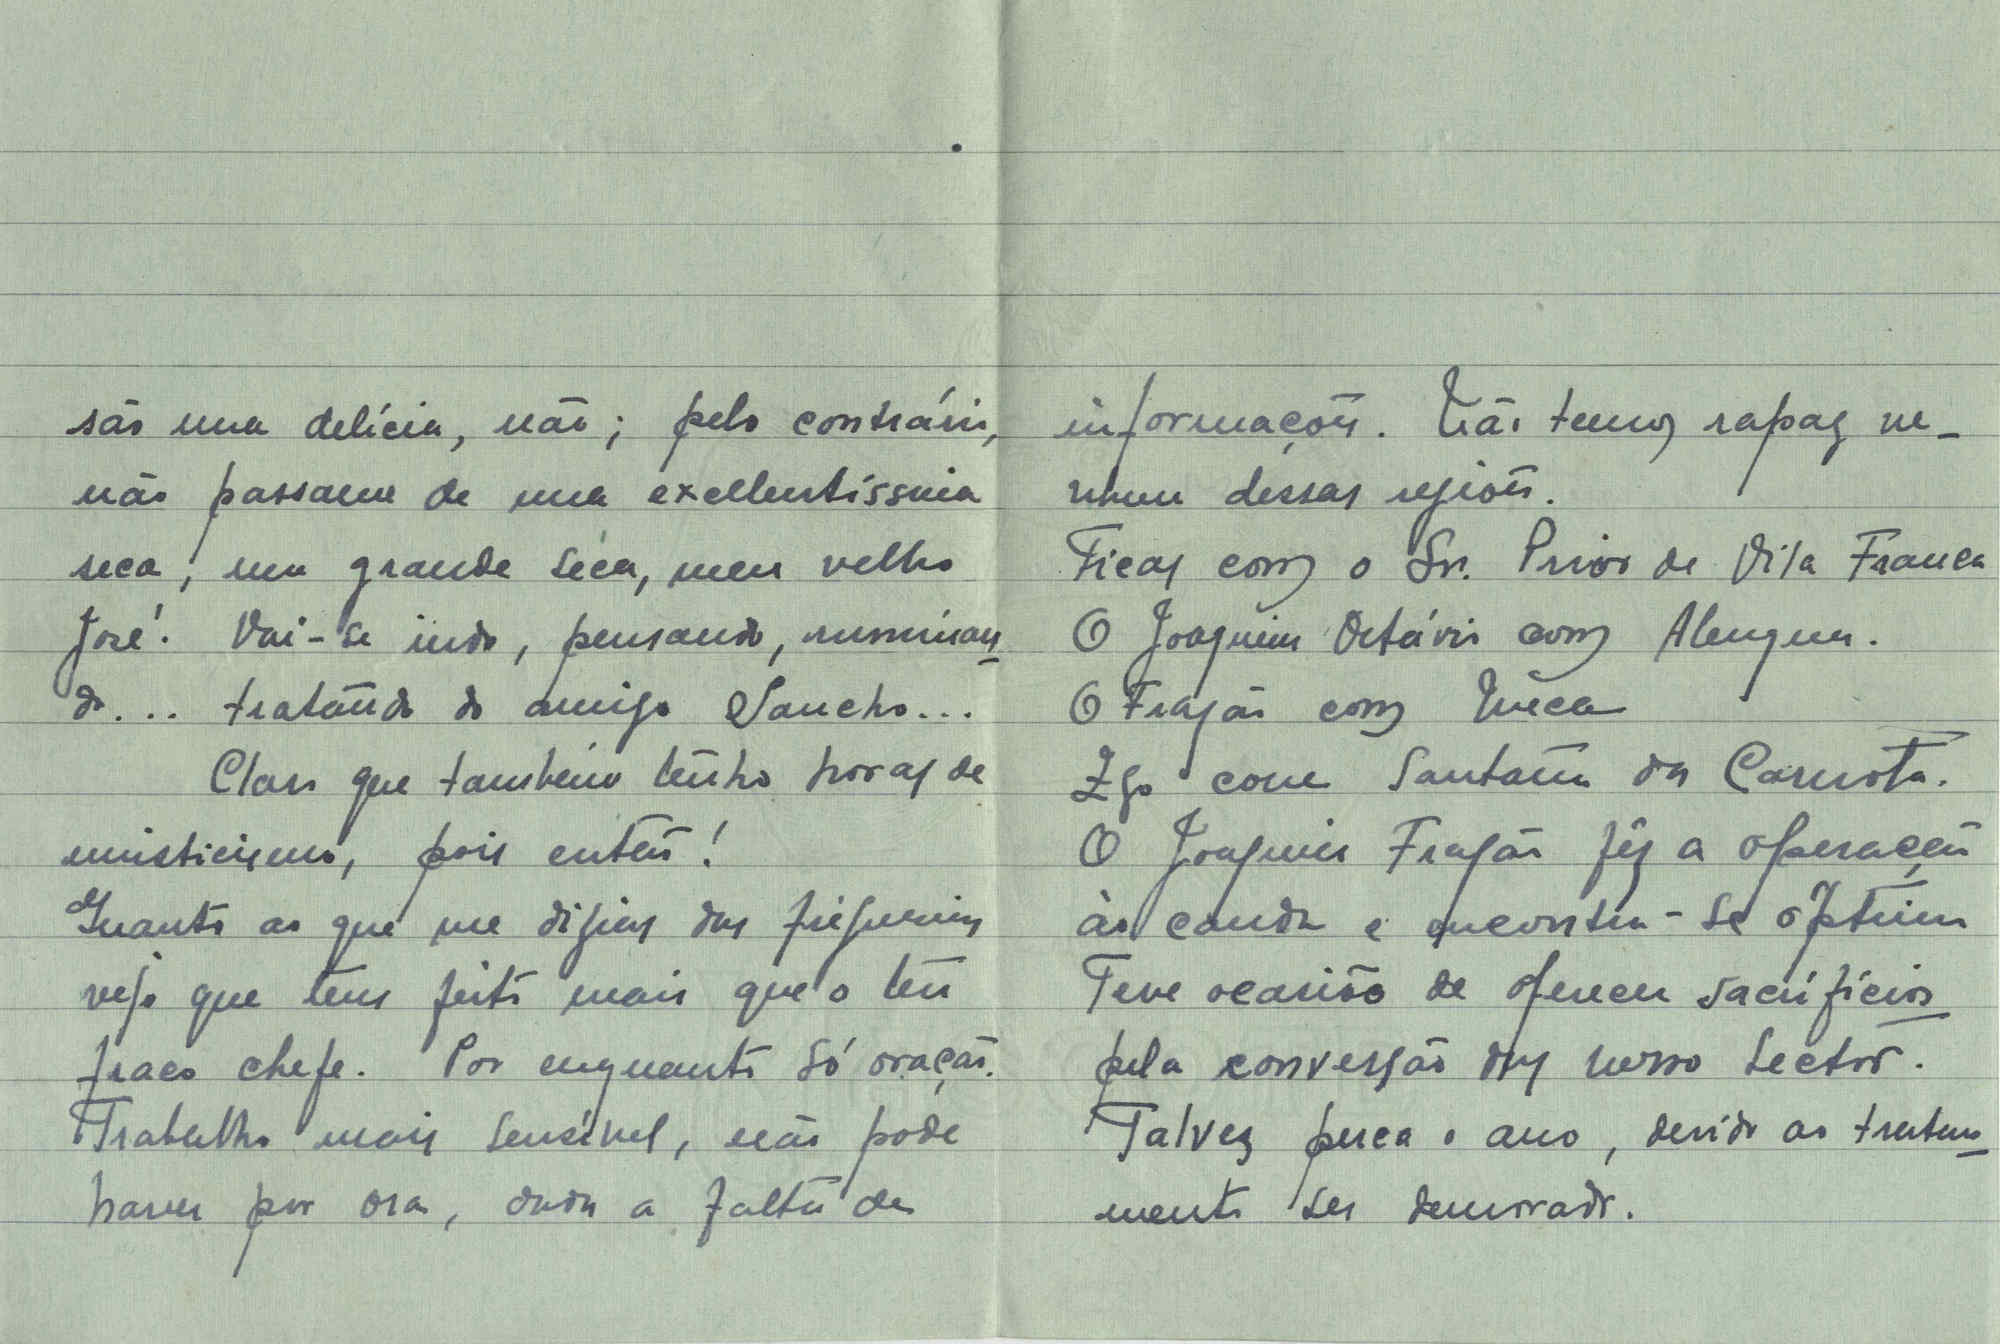 são uma delícia, não; pelo contrário,
não passam de uma excellentíssima
seca, uma grande seca, meu velho
José! Vai-se indo, pensando, ruminan-
do... tratando do amigo Sancho...
Claro que também tenho horas de
misticismo, pois então!
Quanto ao que me dizias das freguesias
vejo que tens feito mais que o teu
fraco chefe. Por enquanto só oração.
Trabalho mais sensível, não pode
haver por ora, dada a falta de
informações. Não temos rapaz ne-
nhum dessas regiões.
Ficas com o Sr. Prior de Vila Franca
O Joaquim Octávio com Alenquer.
O Fragão com
Ego com Santana da Carnota.
O Joaquim Fragão fez a operação
e encontra-se óptimo
Teve ocasião de oferecer sacrifícios
pela conversão do nosso Sector.
Talvez perca o ano, devido ao trata-
mento ser demorado.